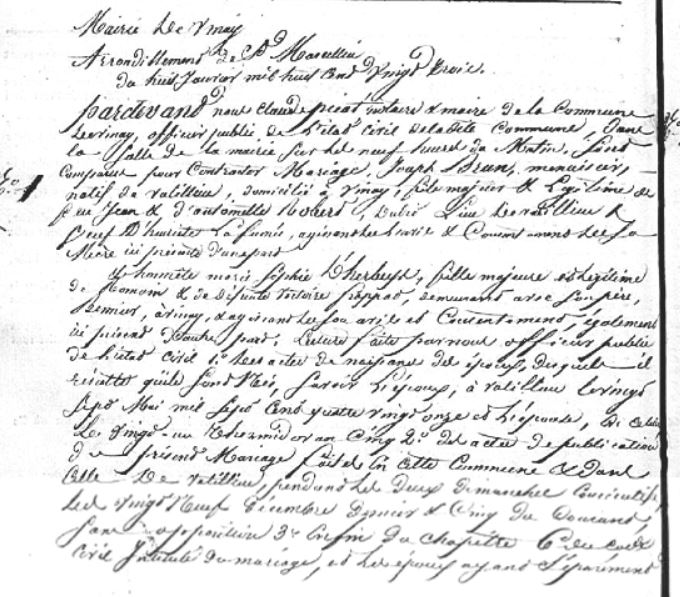 Mairie de Vinay
Arrondissement de St Marcellin
du huit Janvier mil huit cent vingt trois.
pardevant nous claude picat notaire & maire de la Commune
de vinay, officier public de l'état civil de ladite Commune, dans
la salle de la mairie sur les neuf heures du Matin, Sont
Comparus pour Contracter Mariage, Joseph Brun, menuisier,
N.o 1 natif de vatillieu, domicilié à vinay, fils majeur & Légitime de
feu Jean & d'antoinette du dit Lieu de vatillieu &
agissant de l'avis & Consentement de sa
Mere ici présente d'une part
& honnête marie Sophie fille majeure et légitime
de Romain & de défunte victoire demeurant avec son père,
à vinay, & agissant de son avis et Consentement, également
ici présent d'autre part; Lecture faite par nous officier public
de l'état civil 1.o des actes de naissance des époux, desquels il
résulte qu'ils sont Nés, Savoir L'époux, à vatillieu le vingt
sept Mai mil sept Cent quatre vingt onze et L'épouse, En celle
Le vingt-un thermidor an Cinq 2.o des actes de publication
du présent Mariage faites En cette Commune & dans
Celle de vatillieu, pendant les deux Dimanches Consécutifs,
des vingt Neuf Décembre dernier & Cinq du Courant,
sans opposition 3.o Enfin du chapitre 6 du code
civil Intitulé du mariage, et les époux ayant Séparément